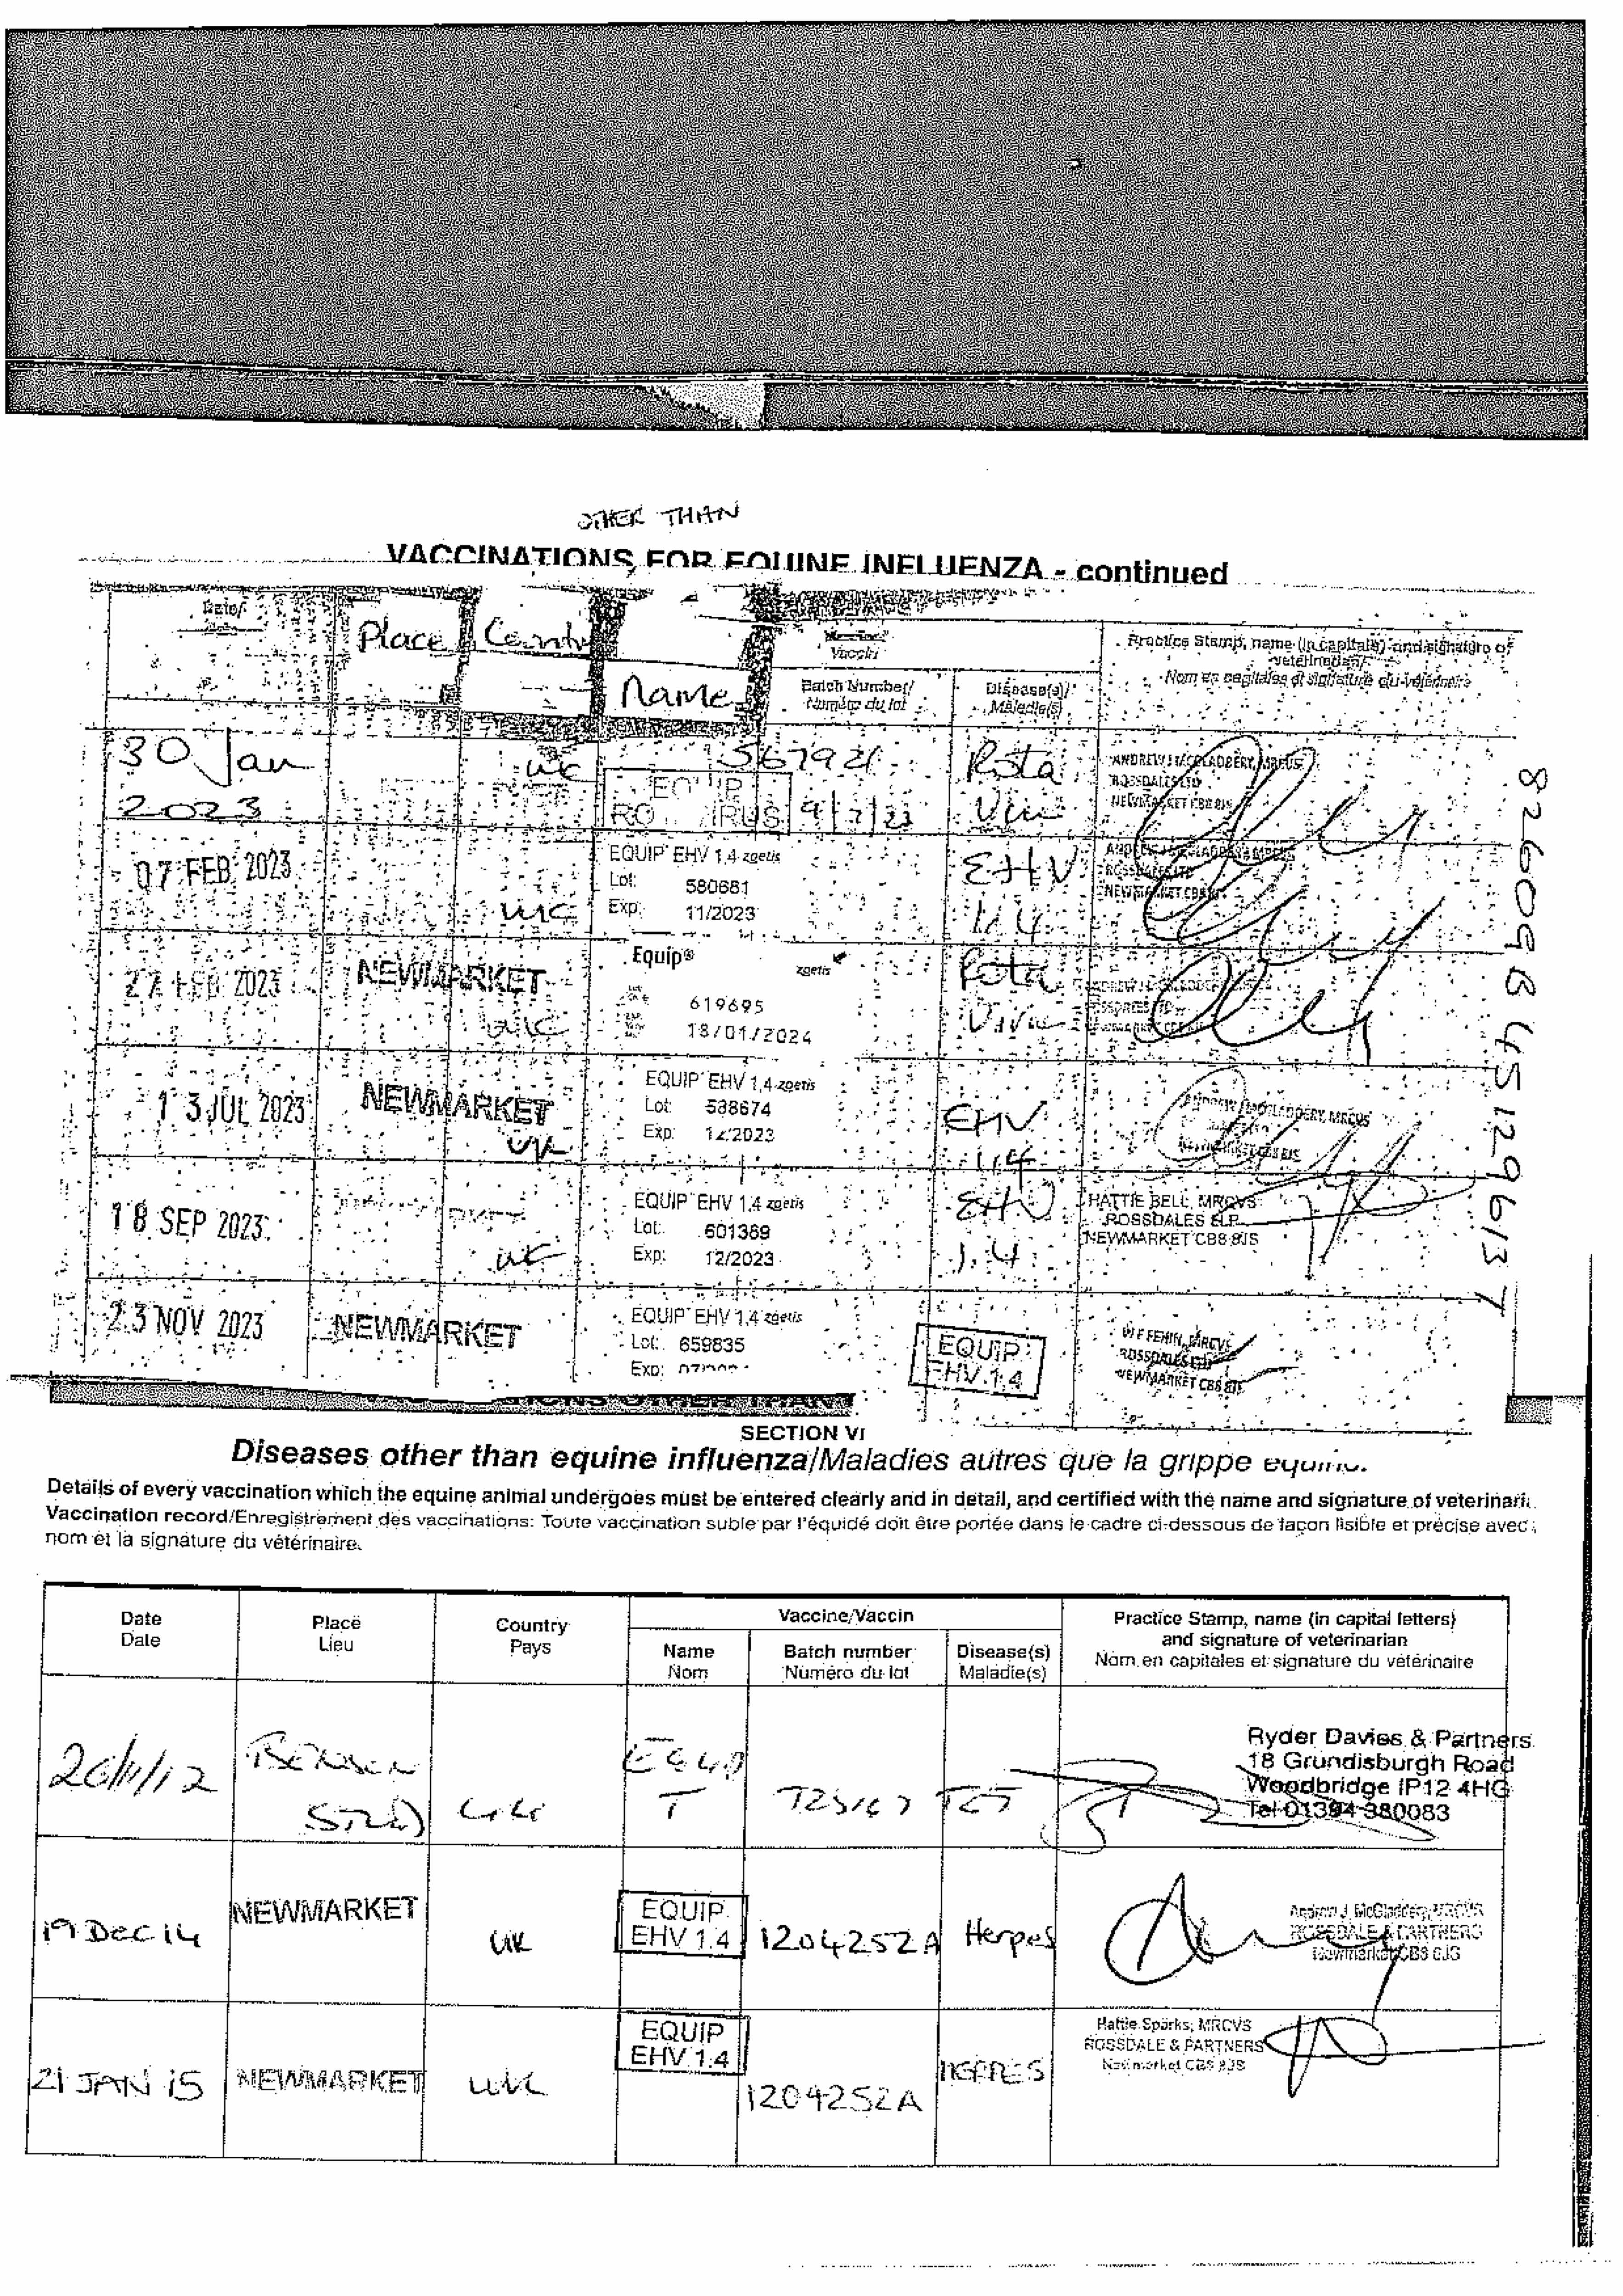 OTHER THAN
VACCINATIONS FOR EQUINE INFLUENZA - continued
Date/
Place
Name
Vaccin
Batch Number/
Numéro du lot
Disease(s)/
Maladie(s)
Practice Stamp, name (in capitals) and signature of
veterinarian/
Nom en capitales et signature du vétérinaire
30 Jan
2023
UK
567921
EQUIP
9/7/23
Rota
ANDREW J MCGLADDERY, MRCVS
ROSSDALES LTD
NEWMARKET CB8 8JS
07 FEB 2023
UK
EQUIP EHV 1,4 zoetis
Lot: 580681
Exp: 11/2023
EHV
1.4
ROSSDALES LTD
NEWMARKET CB8 8JS
27 FEB 2023
NEWMARKET
UK
Equip® zoetis
619695
18/01/2024
Rota
13 JUL 2023
NEWMARKET
UK
EQUIP EHV 1,4 zoetis
Lot: 538674
Exp: 12/2023
EHV
1,4
ANDREW J MCGLADDERY, MRCVS
NEWMARKET CB8 8JS
18 SEP 2023
UK
EQUIP EHV 1,4 zoetis
Lot: 601369
Exp: 12/2023
EHV
1.4
HATTIE BELL, MRCVS
ROSSDALES LLP
NEWMARKET CB8 8JS
23 NOV 2023
NEWMARKET
EQUIP EHV 1,4 zoetis
Lot: 659835
Exp:
EQUIP
EHV 1.4
ROSSDALES LTD
NEWMARKET CB8 8JS
826098451296137
OTHER THAN
SECTION VI
Diseases other than equine influenza/Maladies autres que la grippe equine.
Details of every vaccination which the equine animal undergoes must be entered clearly and in detail, and certified with the name and signature of
Vaccination record/Enregistrement des vaccinations: Toute vaccination subie par l'équidé doit être portée dans le cadre ci-dessous de façon lisible et précise avec
nom et la signature du vétérinaire.
Date
Date
Place
Lieu
Country
Pays
Vaccine/Vaccin
Name
Nom
Batch number
Numéro du lot
Disease(s)
Maladie(s)
Practice Stamp, name (in capital letters)
and signature of veterinarian
Nom en capitales et signature du vétérinaire
STUD
T
TET
Ryder Davies & Partners
18 Grundisburgh Road
Woodbridge IP12 4HG
Tel 01394 380083
19 Dec 14
NEWMARKET
UK
EQUIP
EHV 1.4
1204252A
Herpes
Andrew J. McGladdery, MRCVS
ROSSDALE & PARTNERS
Newmarket CB8 8JS
21 JAN 15
NEWMARKET
UK
EQUIP
EHV 1.4
1204252A
HERPES
Hattie Sparks, MRCVS
ROSSDALE & PARTNERS
Newmarket CB8 8JS